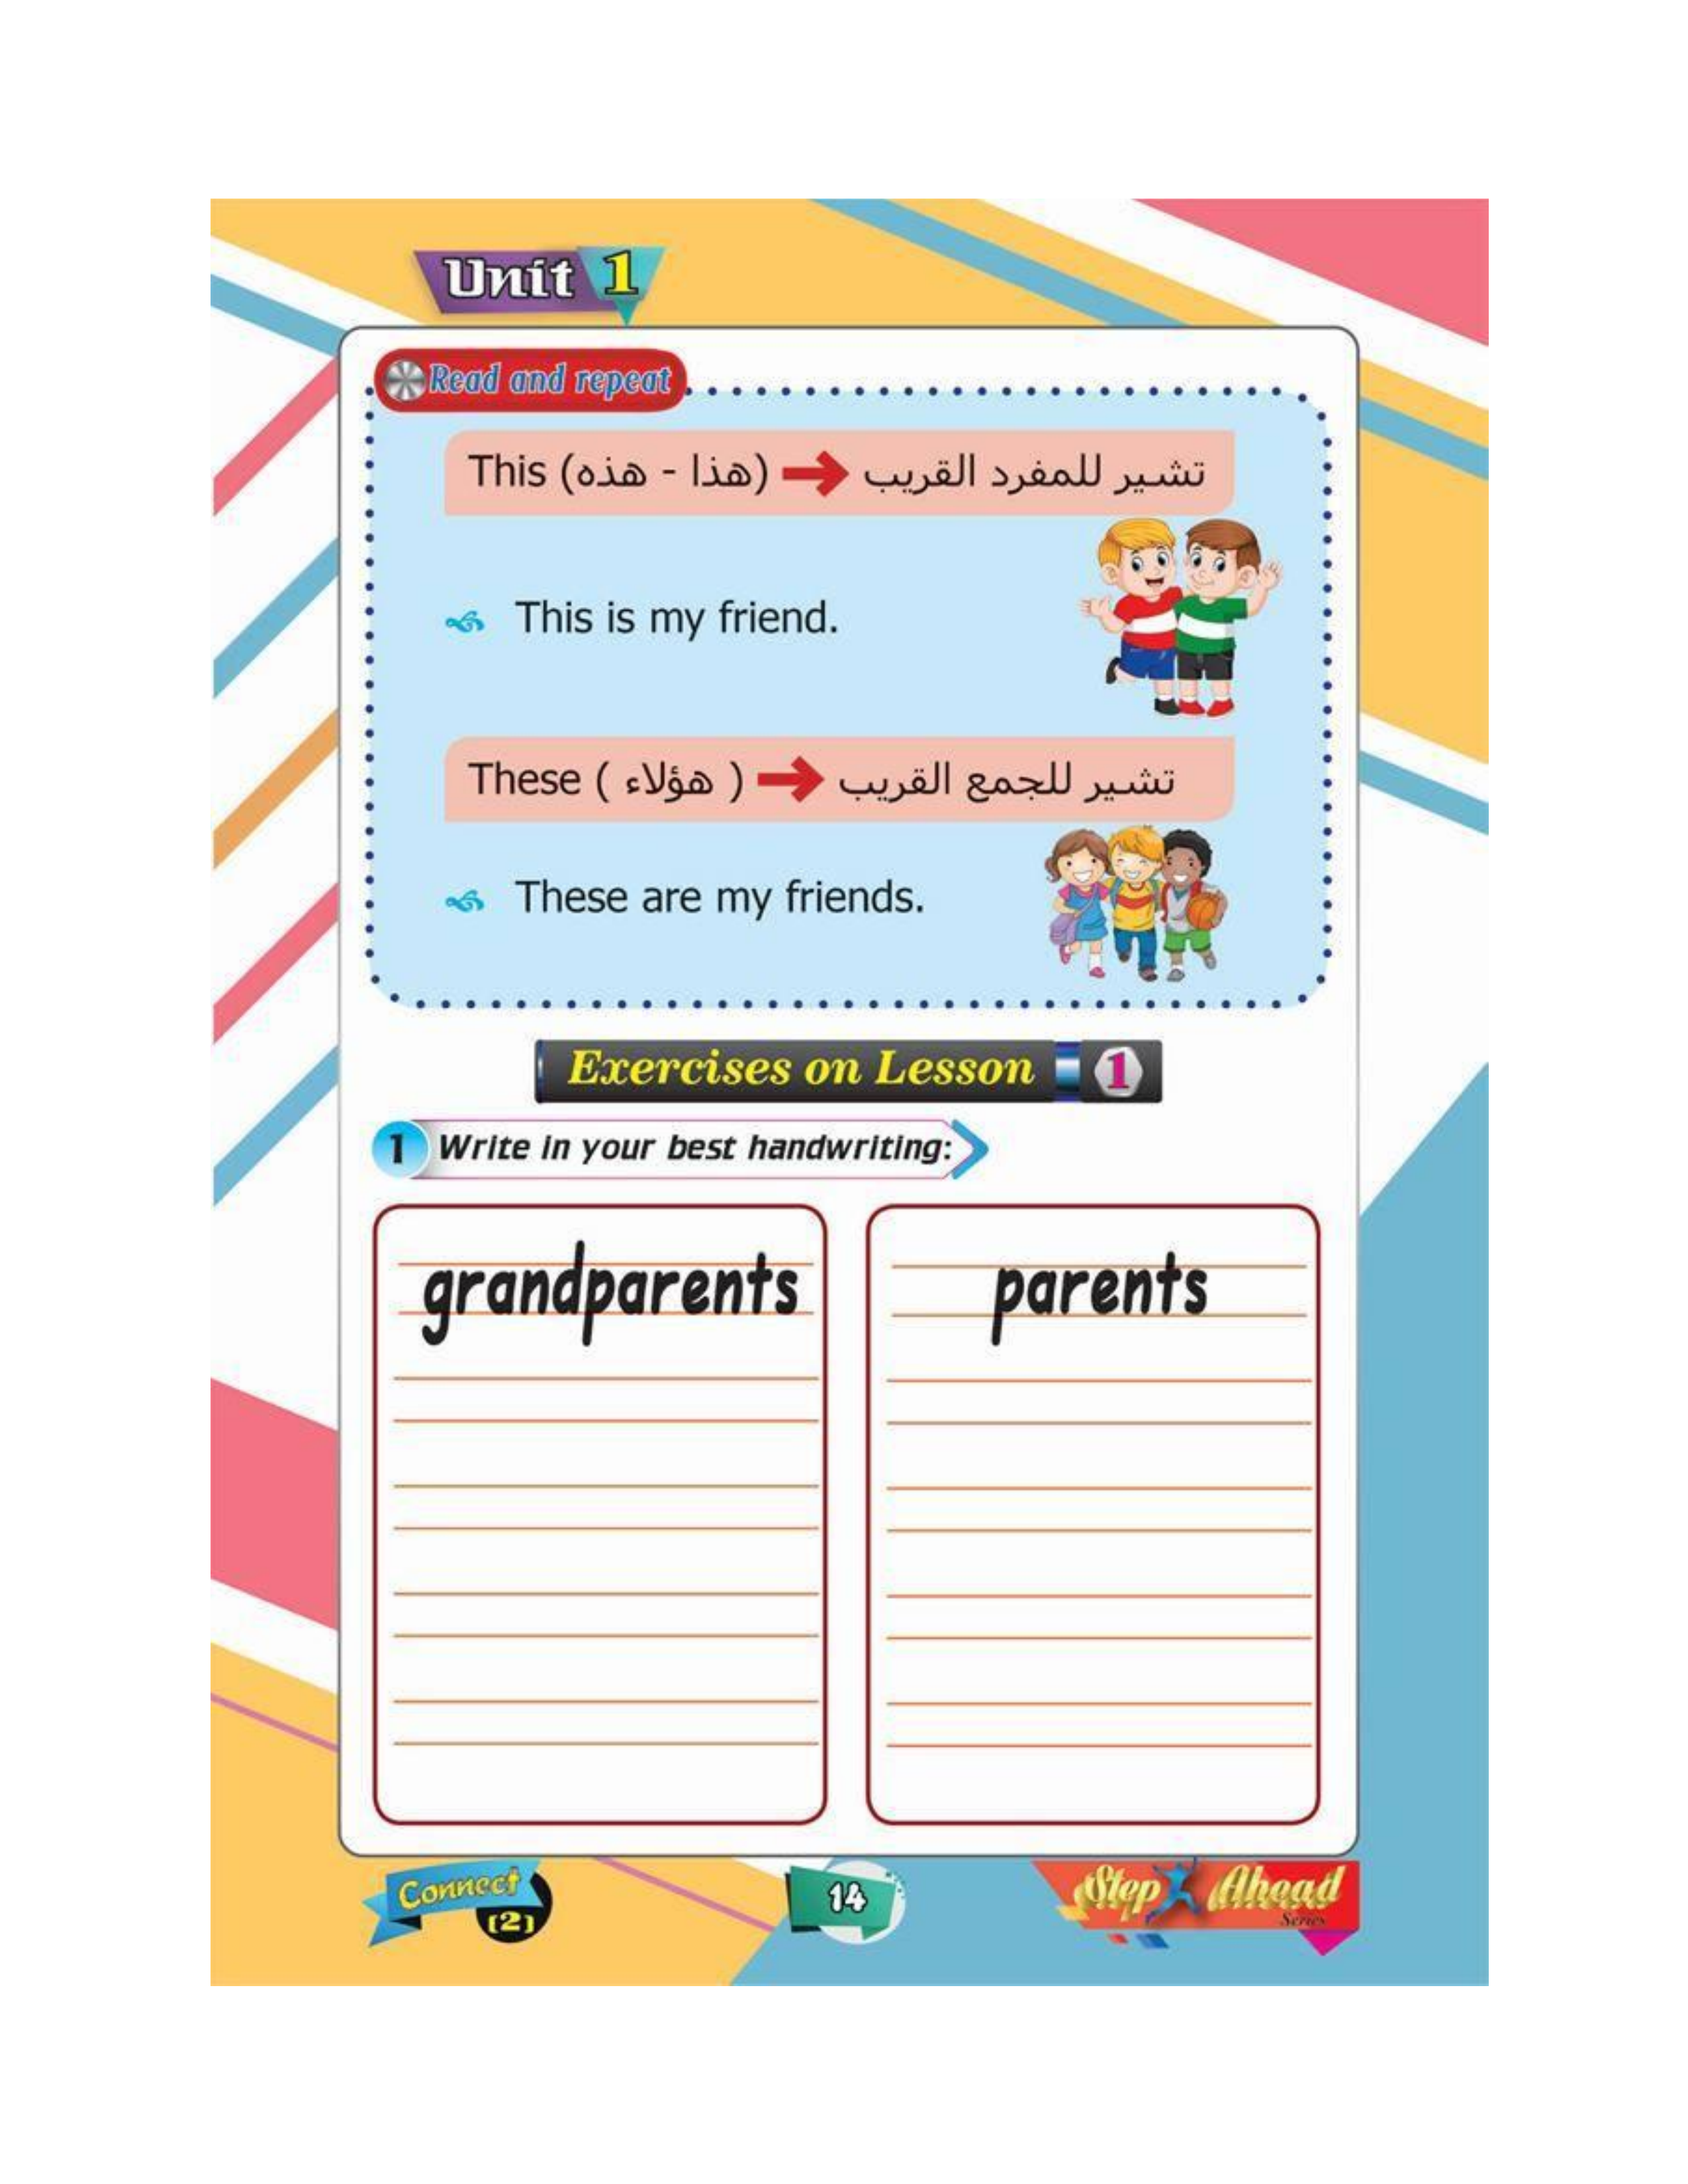 Unit 1
Read and repeat
This (هذا - هذه) ➔ تشير للمفرد القريب
This is my friend.
These ( هؤلاء ) ➔ تشير للجمع القريب
These are my friends.
Exercises on Lesson 1
1 Write in your best handwriting:
grandparents
parents
Connect
(2)
14
Step Ahead
Series